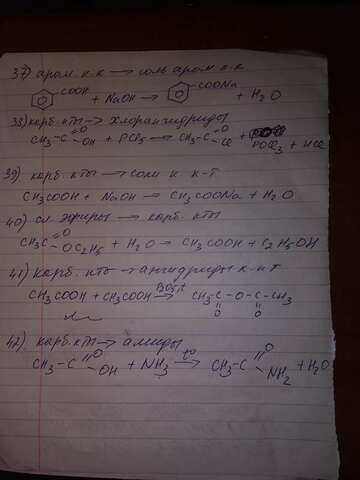 37) аром. к.к → соль аром к.к.
COOH + NaOH → COONa + H2O
38) карб. к-ты → хлорангидриды
CH3-C=O OH + PCl5 → CH3-C=O Cl + POCl3 + HCl
39) карб. кты → соли к. к-т
CH3COOH + NaOH → CH3COONa + H2O
40) сл эфиры → карб. кты
CH3C=O OC2H5 + H2O → CH3COOH + C2H5OH
41) карб. кты → ангидриды к-и-т
CH3COOH + CH3COOH → CH3-C-O-C-CH3
O O
42) карб. кты → амиды
CH3-C=O OH + NH3 t° → CH3-C=O NH2 + H2O